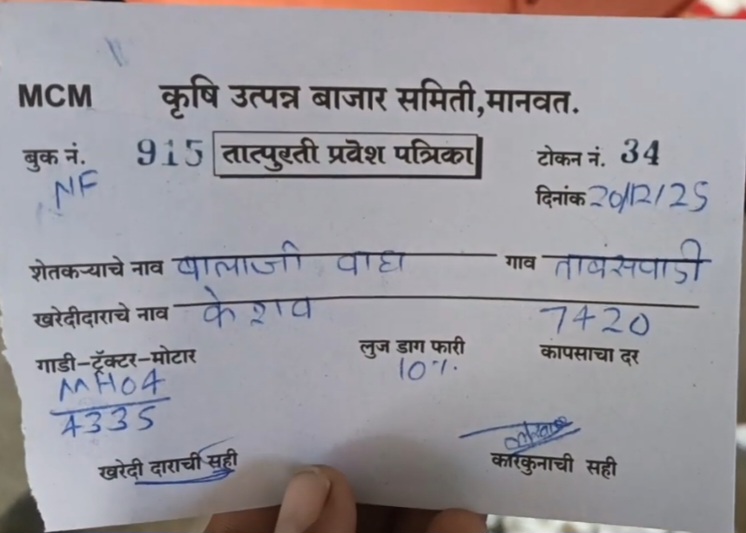 MCM कृषि उत्पन्न बाजार समिती,मानवत.
बुक नं. 915 तात्पुरती प्रवेश पत्रिका टोकन नं. 34
NF दिनांक 20/12/25
शेतकऱ्याचे नाव बालाजी वाघ गाव ताबसवाडी
खरेदीदाराचे नाव केशव 7420
गाडी-ट्रॅक्टर-मोटार लुज डाग फारी कापसाचा दर
MH04 10%.
4335
खरेदी दाराची सही कारकुनाची सही